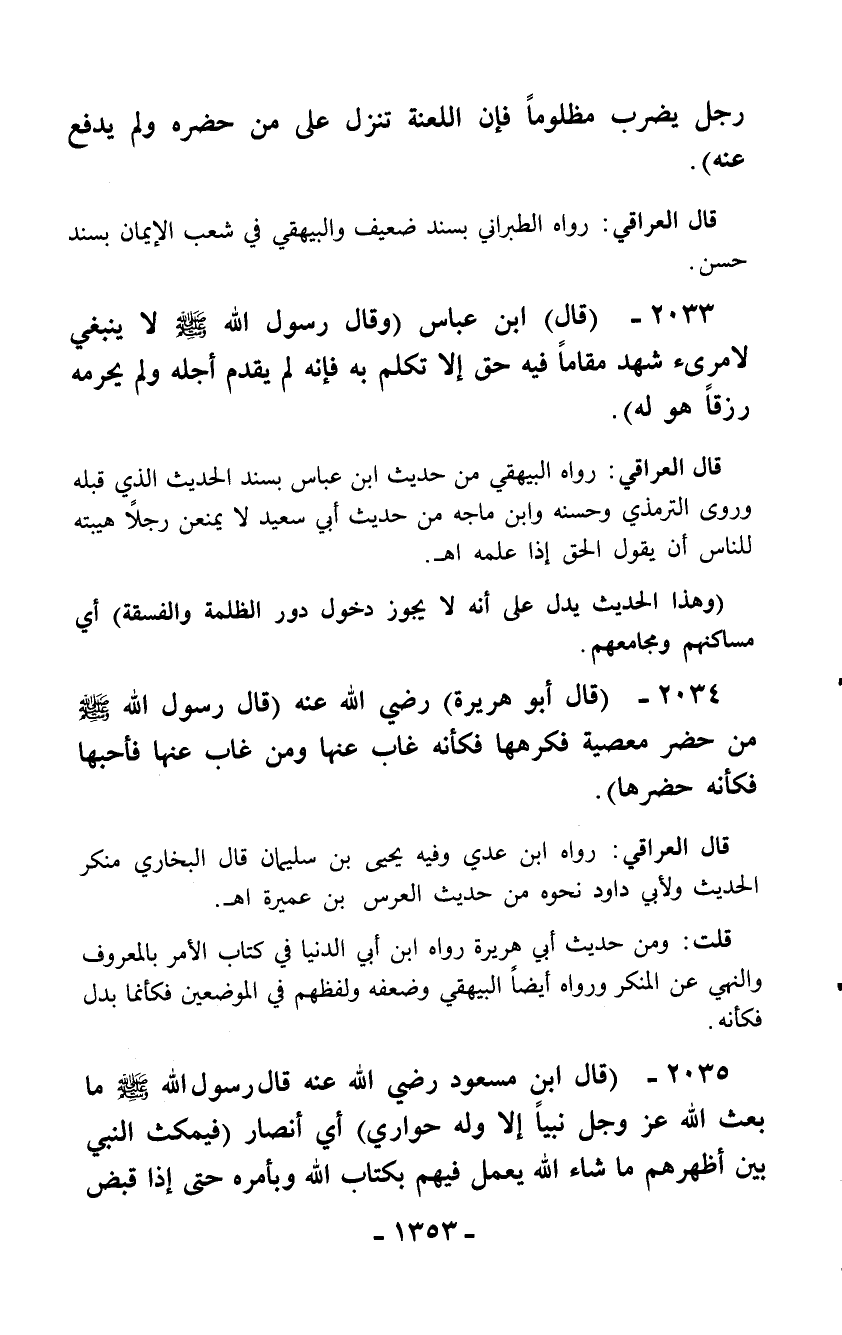 رجل يضرب مظلوماً فإن اللعنة تنزل على من حضره ولم يدفع
عنه).
قال العراقي: رواه الطبراني بسند ضعيف والبيهقي في شعب الإيمان بسند
حسن.
٢٠٣٣ - (قال) ابن عباس (وقال رسول الله ﷺ لا ينبغي
لامرىء شهد مقاماً فيه حق إلا تكلم به فإنه لم يقدم أجله ولم يحرمه
رزقاً هو له).
قال العراقي: رواه البيهقي من حديث ابن عباس بسند الحديث الذي قبله
وروى الترمذي وحسنه وابن ماجه من حديث أبي سعيد لا يمنعن رجلاً هيبته
للناس أن يقول الحق إذا علمه اهـ.
(وهذا الحديث يدل على أنه لا يجوز دخول دور الظلمة والفسقة) أي
مساكنهم ومجامعهم.
٢٠٣٤ - (قال أبو هريرة) رضي الله عنه (قال رسول الله ﷺ
من حضر معصية فكرهها فكأنه غاب عنها ومن غاب عنها فأحبها
فكأنه حضرها).
قال العراقي: رواه ابن عدي وفيه يحيى بن سليمان قال البخاري منكر
الحديث ولأبي داود نحوه من حديث العرس بن عميرة اهـ.
قلت: ومن حديث أبي هريرة رواه ابن أبي الدنيا في كتاب الأمر بالمعروف
والنهي عن المنكر ورواه أيضاً البيهقي وضعفه ولفظهم في الموضعين فكأنما بدل
فكأنه.
٢٠٣٥ - (قال ابن مسعود رضي الله عنه قال رسول الله ﷺ ما
بعث الله عز وجل نبياً إلا وله حواري) أي أنصار (فيمكث النبي
بين أظهرهم ما شاء الله يعمل فيهم بكتاب الله وبأمره حتى إذا قبض
- ١٣٥٣ -